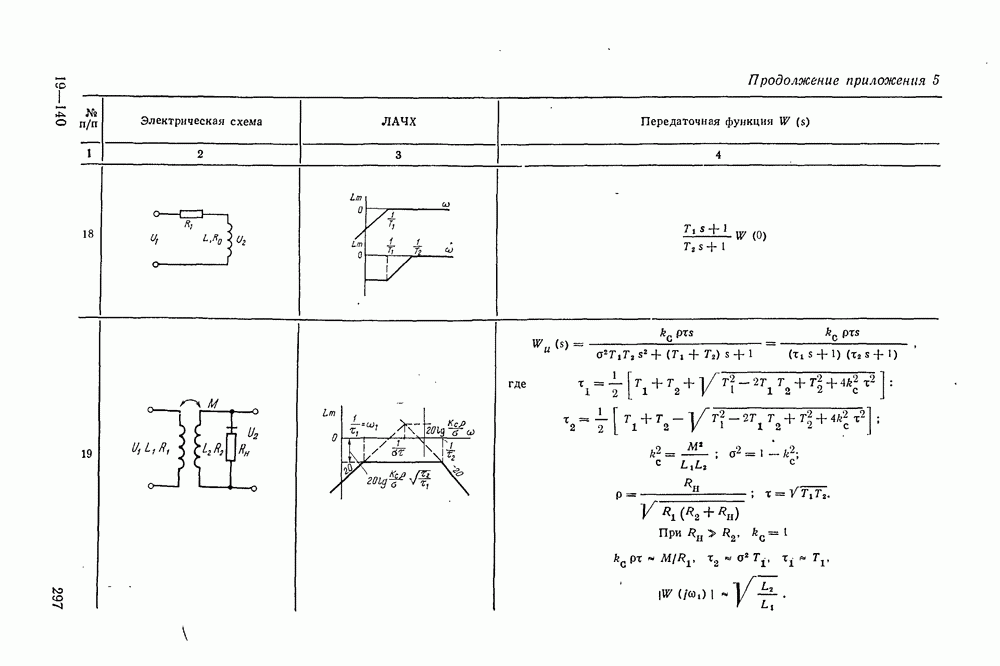 Продолжение приложения 5
19—140
№ п/п
Электрическая схема
ЛАЧХ
Передаточная функция W (s)
1
2
3
4
18
R₁
U₁
L,R₀
U₂
Lm
0
ω
1/T₁
Lm
0
1/T₁
1/T₂
ω
(T₁ s + 1)/(T₂ s + 1) W (0)
19
M
U₁ L₁ R₁
L₂ R₂
Rн
U₂
Lm
0
1/τ₁=ω₁
20lg Kcρ/σ
ω
1/στ
1/τ₂
20
20lg Kcρ/σ √(τ₂/τ₁)
-20
W_u (s) = k_c ρτs / (σ²T₁T₂ s² + (T₁ + T₂) s + 1) = k_c ρτs / ((τ₁ s + 1) (τ₂ s + 1)) ,
где τ₁ = 1/2 [T₁ + T₂ + √(T₁² — 2T₁ T₂ + T₂² + 4k_c² τ²)] :
τ₂ = 1/2 [T₁ + T₂ — √(T₁² — 2T₁ T₂ + T₂² + 4k_c² τ²)] ;
k_c² = M²/(L₁L₂) ; σ² = 1 — k_c²;
ρ = Rн / √(R₁ (R₂ + Rн)) ; τ = √(T₁T₂).
При Rн ≫ R₂, k_c = 1
k_c ρτ ≈ M/R₁, τ₂ ≈ σ² T₁, τ₁ ≈ T₁,
|W (jω₁) | ≈ √(L₂/L₁) .
297